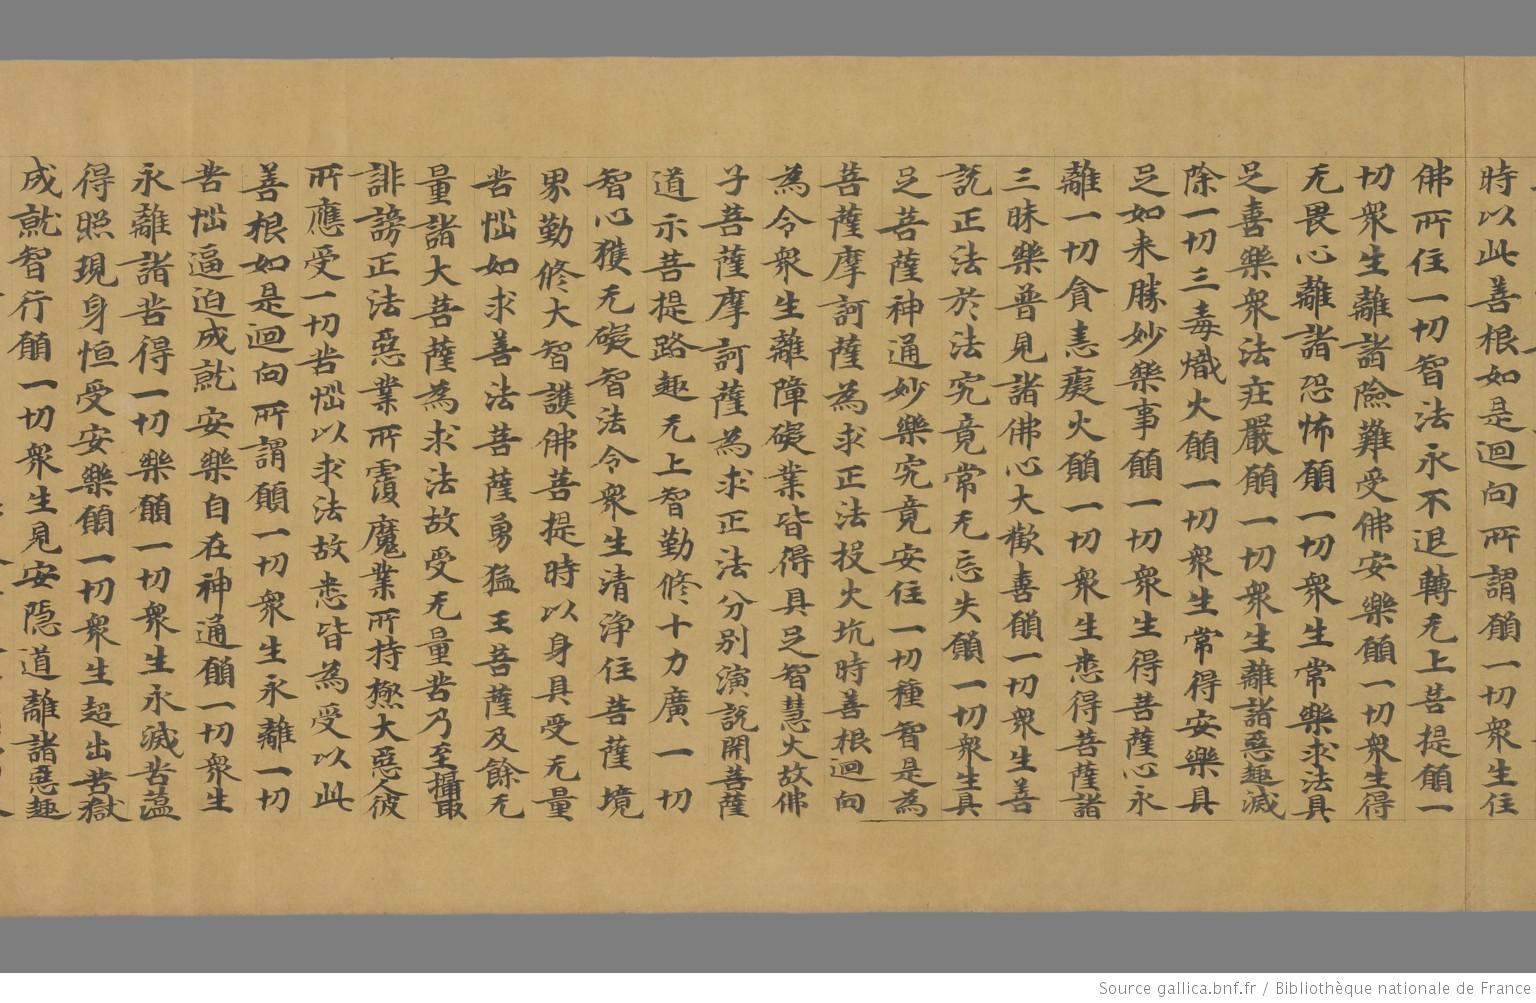 時以此善根如是迴向所謂願一切衆生住
佛所住一切智法永不退轉无上菩提願一
切衆生離諸險難受佛安樂願一切衆生得
无畏心離諸恐怖願一切衆生常樂求法具
足喜樂衆法莊嚴願一切衆生離諸惡趣滅
除一切三毒熾火願一切衆生常得安樂具
足如来勝妙樂事願一切衆生得菩薩心永
離一切貪恚癡火願一切衆生悉得菩薩諸
三昧樂普見諸佛心大歡喜願一切衆生善
說正法於法究竟常无忘失願一切衆生具
足菩薩神通妙樂究竟安住一切種智是為
菩薩摩訶薩為求正法投火坑時善根迴向
為令衆生離障礙業皆得具足智慧火故佛
子菩薩摩訶薩為求正法分別演說開菩薩
道示菩提路趣无上智勤修十力廣一切
智心獲无礙智法令衆生清淨住菩薩境
界勤修大智護佛菩提時以身具受无量
苦惱如求善法菩薩勇猛王菩薩及餘无
量諸大菩薩為求法故受无量苦乃至攝取
誹謗正法惡業所覆魔業所持極大惡人彼
所應受一切苦惱以求法故悉皆為受以此
善根如是迴向所謂願一切衆生永離一切
苦惱逼迫成就安樂自在神通願一切衆生
永離諸苦得一切樂願一切衆生永滅苦蘊
得照現身恒受安樂願一切衆生超出苦獄
成就智行願一切衆生見安隱道離諸惡趣
Source gallica.bnf.fr / Bibliothèque nationale de France